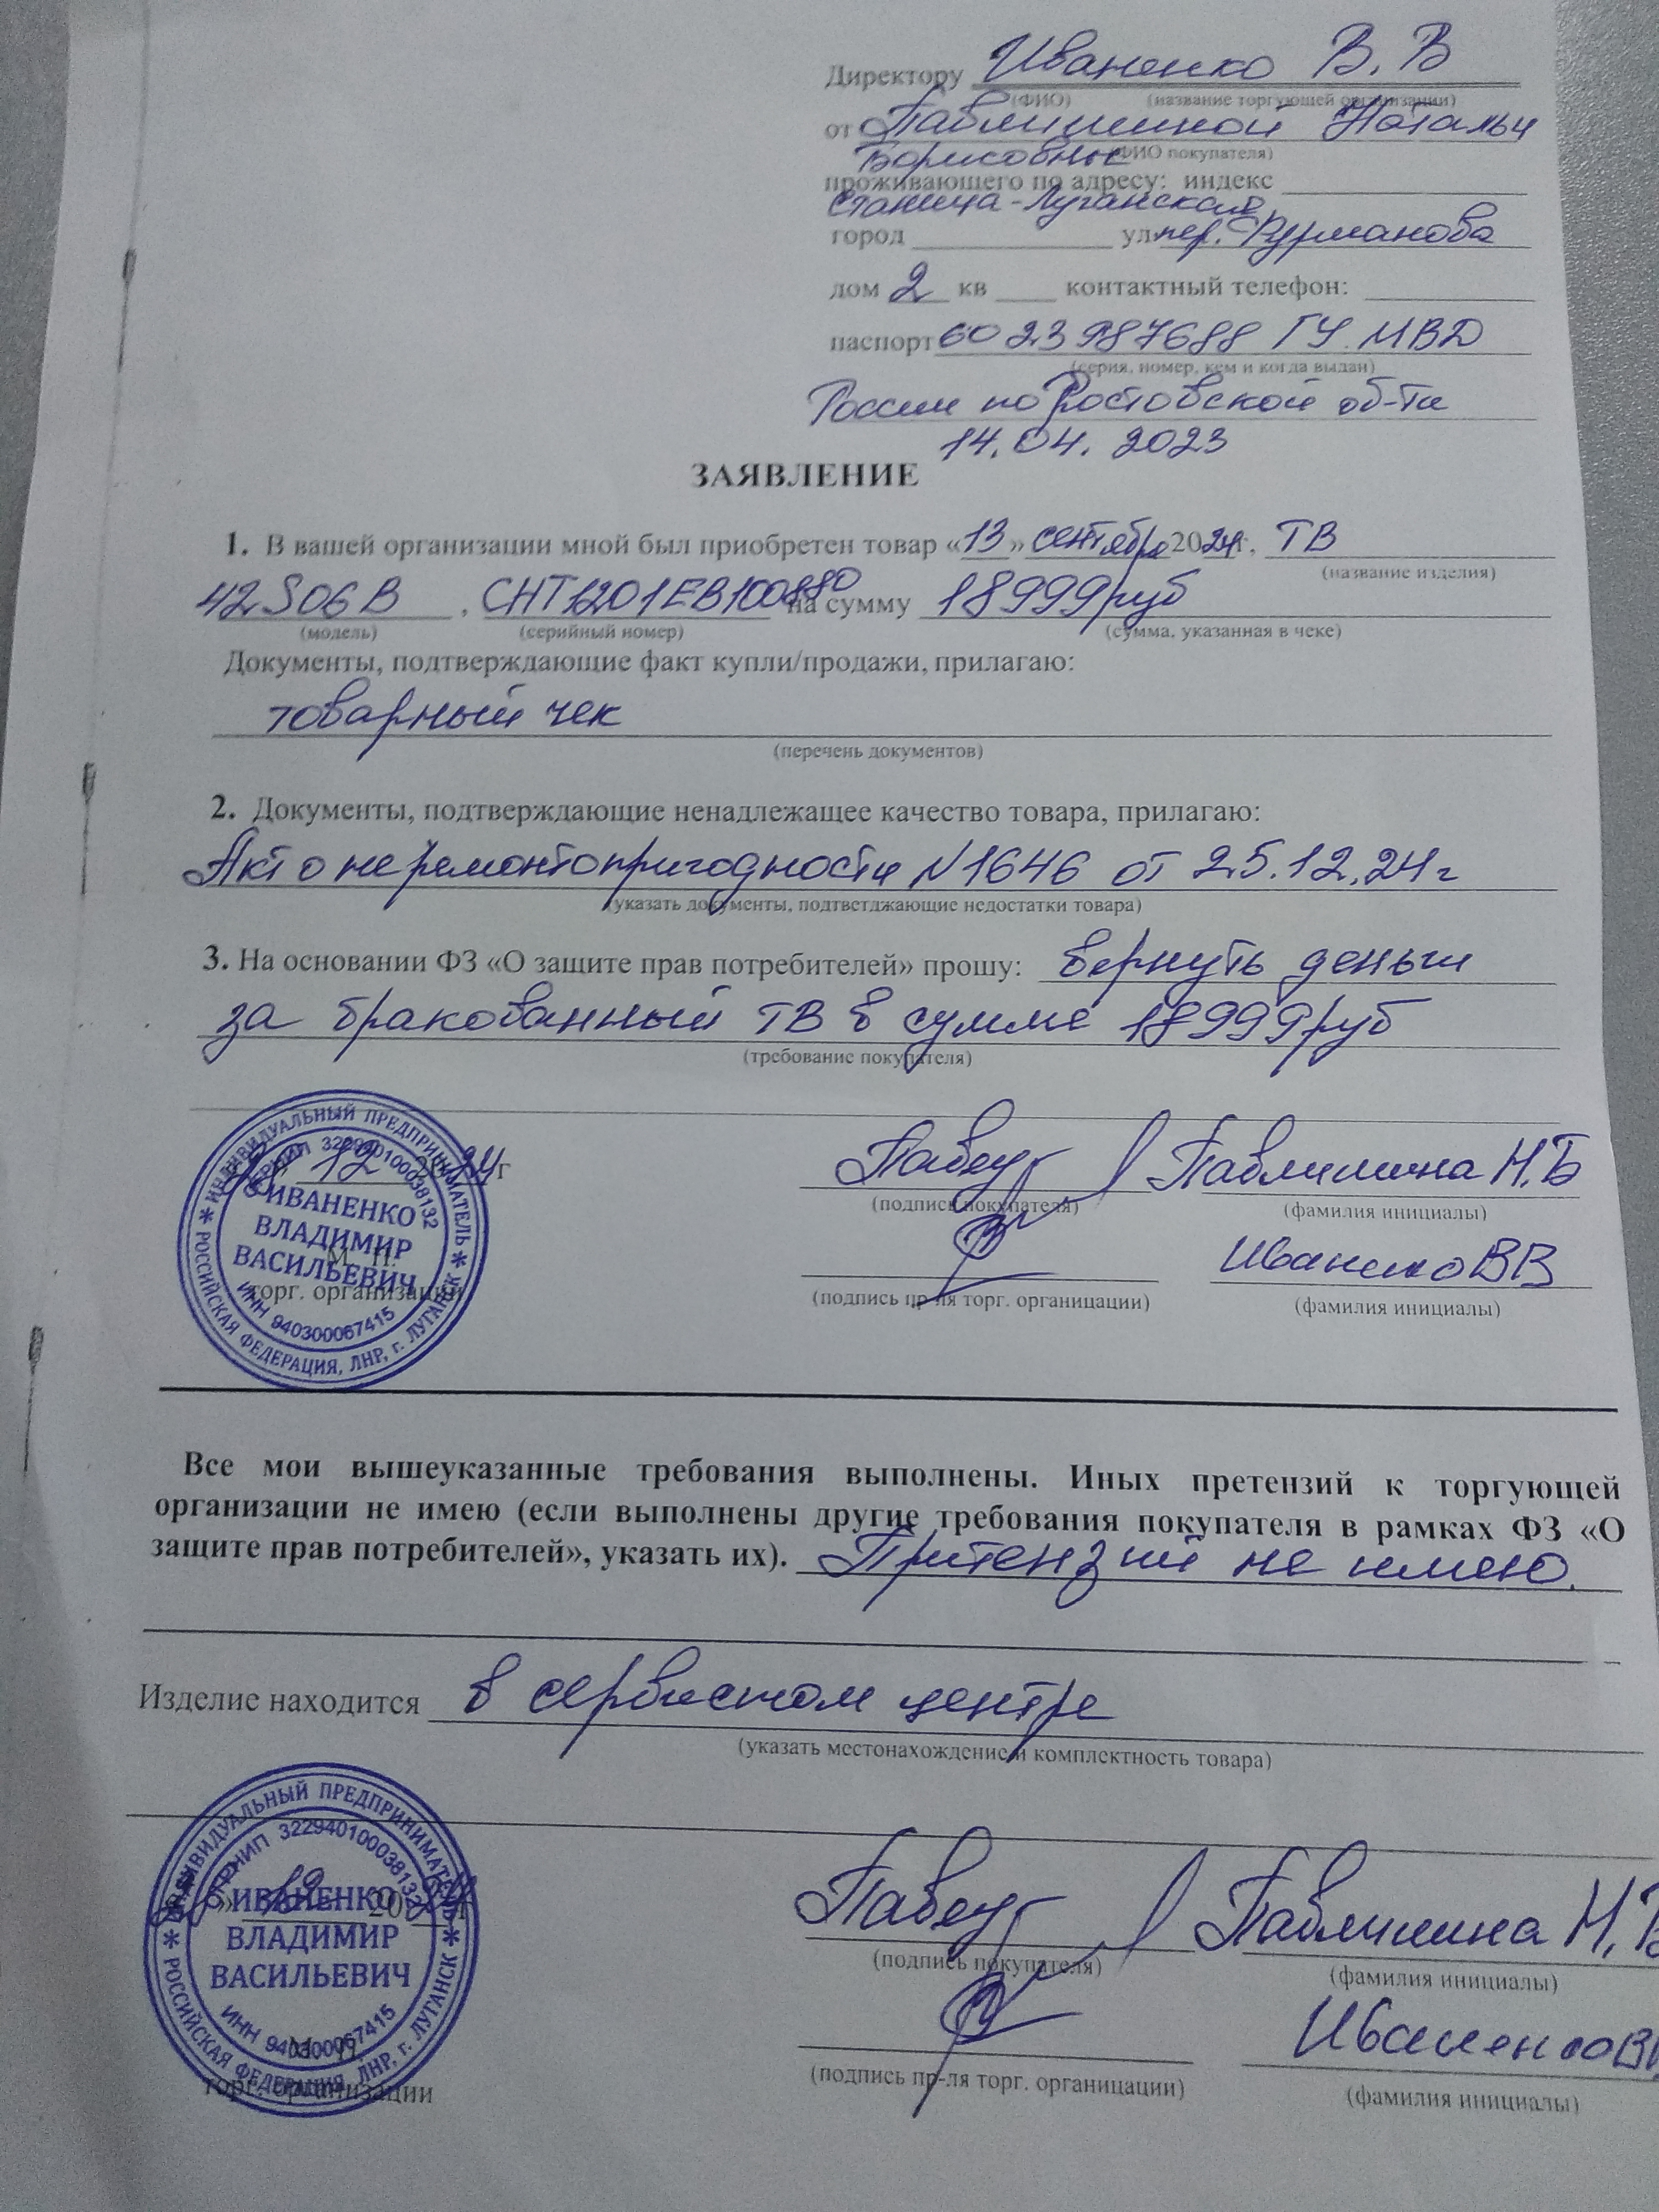 Директору Иваненко В. В
(ФИО) (название торгующей организации)
от Павлишиной Натальи
Борисовны (ФИО покупателя)
проживающего по адресу: индекс
Станица-Луганская
город ул пер. Фурманова
дом 2 кв контактный телефон:
паспорт 60 23 987688 ГУ МВД
(серия, номер, кем и когда выдан)
России по Ростовской об-ти
14.04.2023
ЗАЯВЛЕНИЕ
1. В вашей организации мной был приобретен товар «13» сентября 2024г, ТВ
(название изделия)
42S06B , CHT1201EB100880 на сумму 18999руб
(модель) (серийный номер) (сумма, указанная в чеке)
Документы, подтверждающие факт купли/продажи, прилагаю:
товарный чек
(перечень документов)
2. Документы, подтверждающие ненадлежащее качество товара, прилагаю:
Акт о неремонтопригодности N1646 от 25.12.24г
(указать документы, подтветджающие недостатки товара)
3. На основании ФЗ «О защите прав потребителей» прошу: вернуть деньги
за бракованный ТВ в сумме 18999руб
(требование покупателя)
12 2024г Павлишина Н.Б
(подпись покупателя) (фамилия инициалы)
Иваненко ВВ
(подпись пр-ля торг. органицации) (фамилия инициалы)
М. П.
торг. организации
ИНДИВИДУАЛЬНЫЙ ПРЕДПРИНИМАТЕЛЬ
ОГРНИП 322940100038132
ИВАНЕНКО
ВЛАДИМИР
ВАСИЛЬЕВИЧ
ИНН 940300067415
РОССИЙСКАЯ ФЕДЕРАЦИЯ, ЛНР, г. ЛУГАНСК
Все мои вышеуказанные требования выполнены. Иных претензий к торгующей
организации не имею (если выполнены другие требования покупателя в рамках ФЗ «О
защите прав потребителей», указать их). Притензий не имею.
Изделие находится в сервисном центре
(указать местонахождение и комплектность товара)
» 12 2024г Павлишина Н.Б
(подпись покупателя) (фамилия инициалы)
Иваненко В
(подпись пр-ля торг. органицации) (фамилия инициалы)
М. П.
торг. организации
ИНДИВИДУАЛЬНЫЙ ПРЕДПРИНИМАТЕЛЬ
ОГРНИП 322940100038132
ИВАНЕНКО
ВЛАДИМИР
ВАСИЛЬЕВИЧ
ИНН 940300067415
РОССИЙСКАЯ ФЕДЕРАЦИЯ, ЛНР, г. ЛУГАНСК